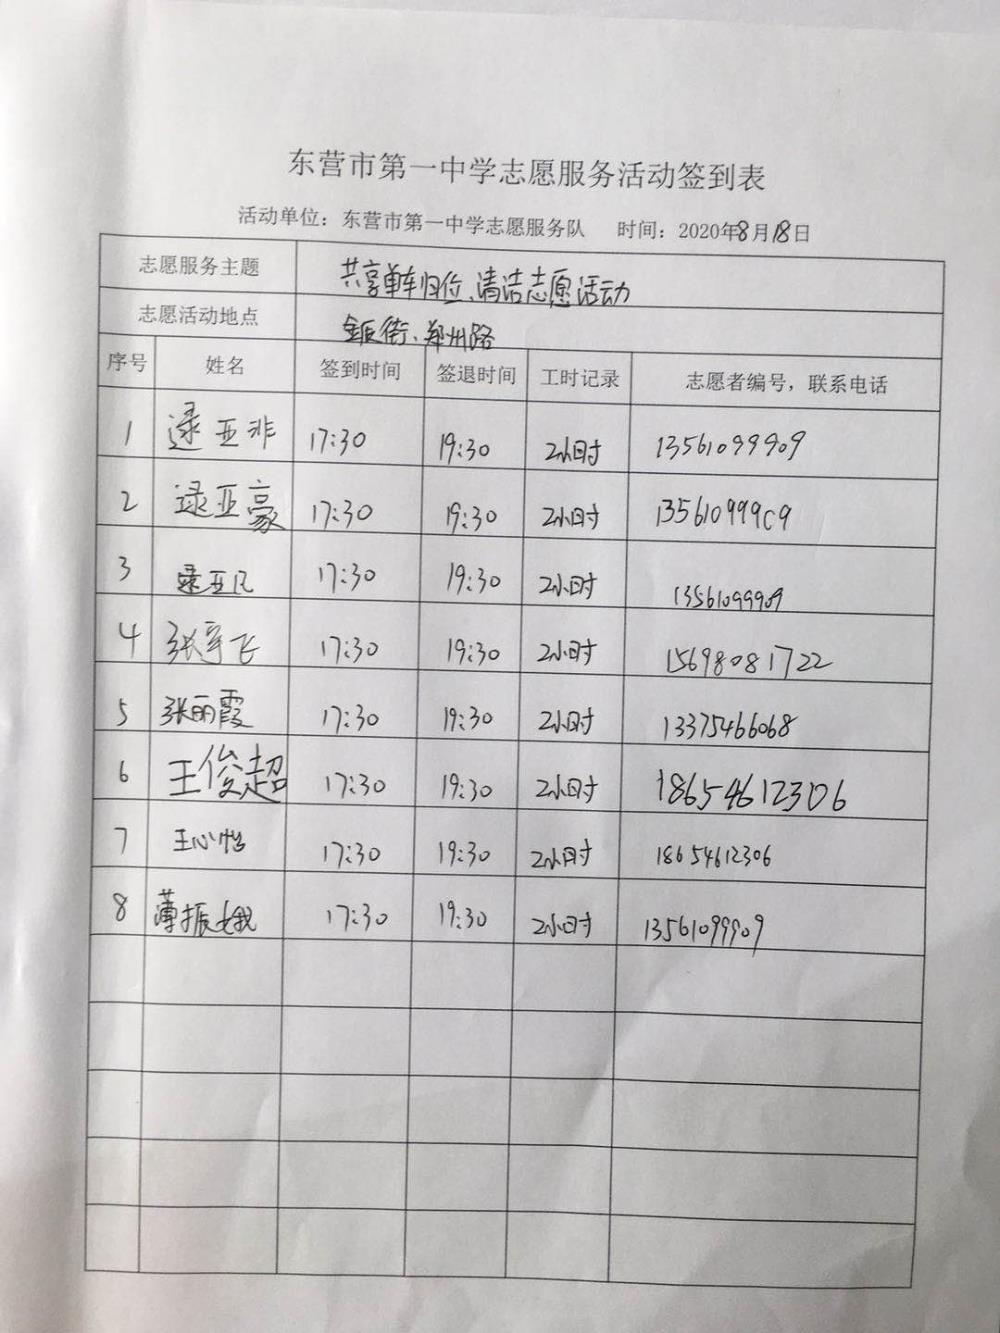 东营市第一中学志愿服务活动签到表
活动单位：东营市第一中学志愿服务队 时间：2020年8月18日
志愿服务主题 共享单车归位、清洁志愿活动
志愿活动地点 金辰街、郑州路
序号 姓名 签到时间 签退时间 工时记录 志愿者编号，联系电话
1 逯亚非 17:30 19:30 2小时 13561099909
2 逯亚豪 17:30 19:30 2小时 13561099909
3 逯亚凡 17:30 19:30 2小时 13561099909
4 张宇飞 17:30 19:30 2小时 15698081722
5 张丽霞 17:30 19:30 2小时 13375466068
6 王俊超 17:30 19:30 2小时 18654612306
7 王心怡 17:30 19:30 2小时 18654612306
8 薄振娥 17:30 19:30 2小时 13561099909